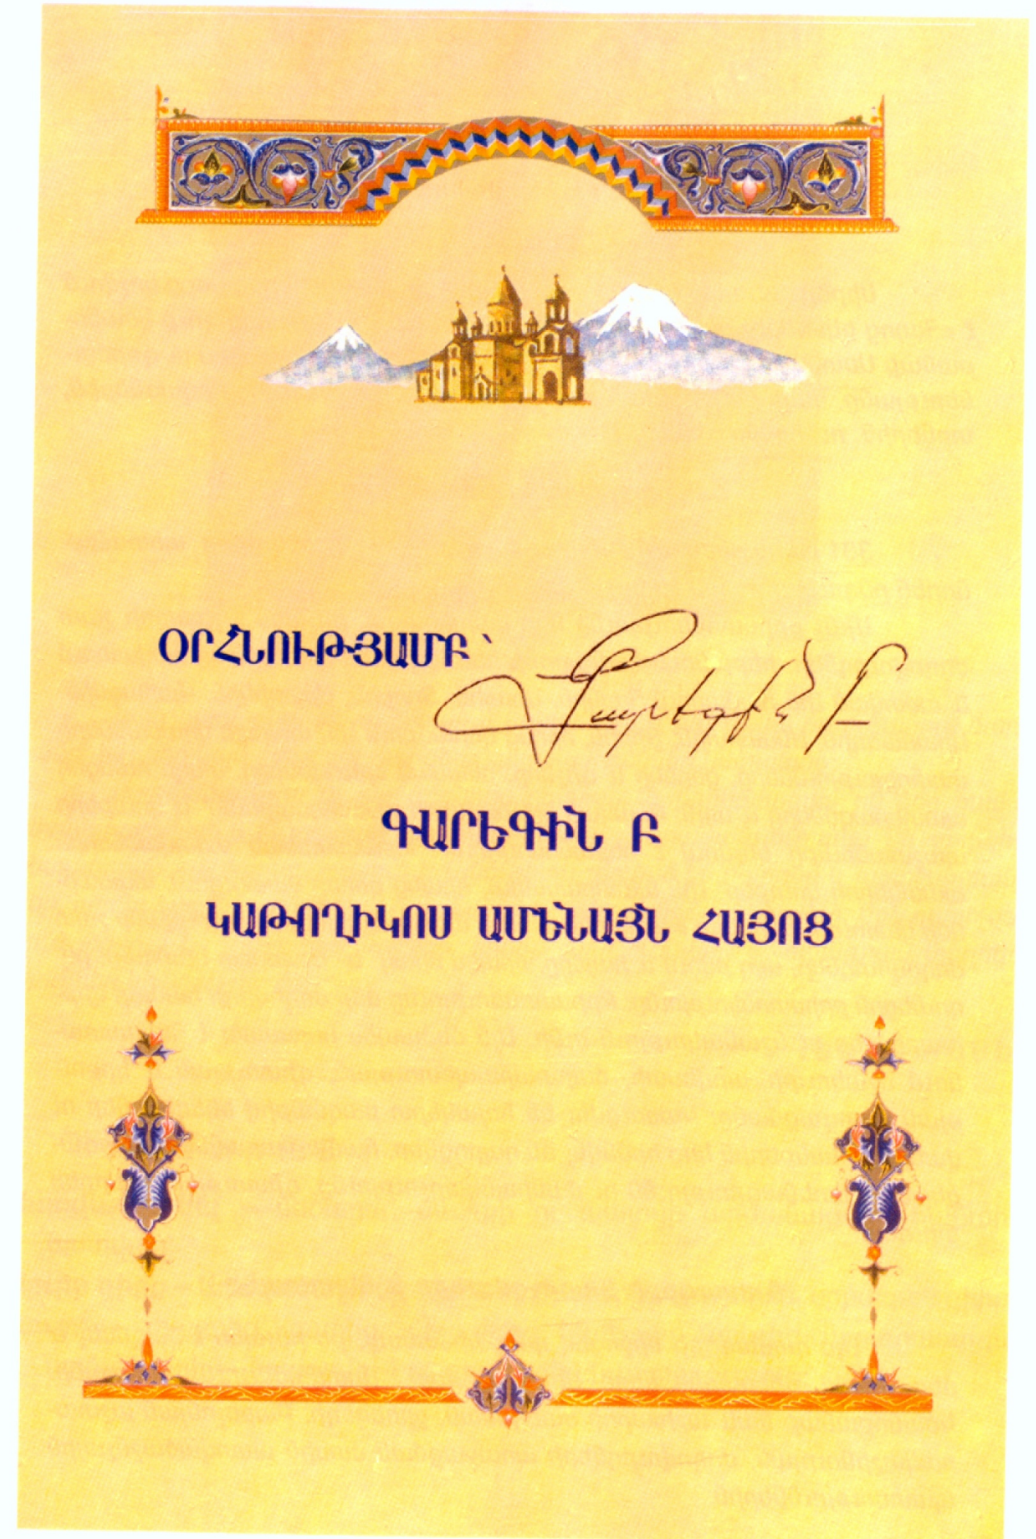 ՕՐՀՆՈՒԹՅԱՄԲ՝
Գարեգին Բ
ԳԱՐԵԳԻՆ Բ
ԿԱԹՈՂԻԿՈՍ ԱՄԵՆԱՅՆ ՀԱՅՈՑ